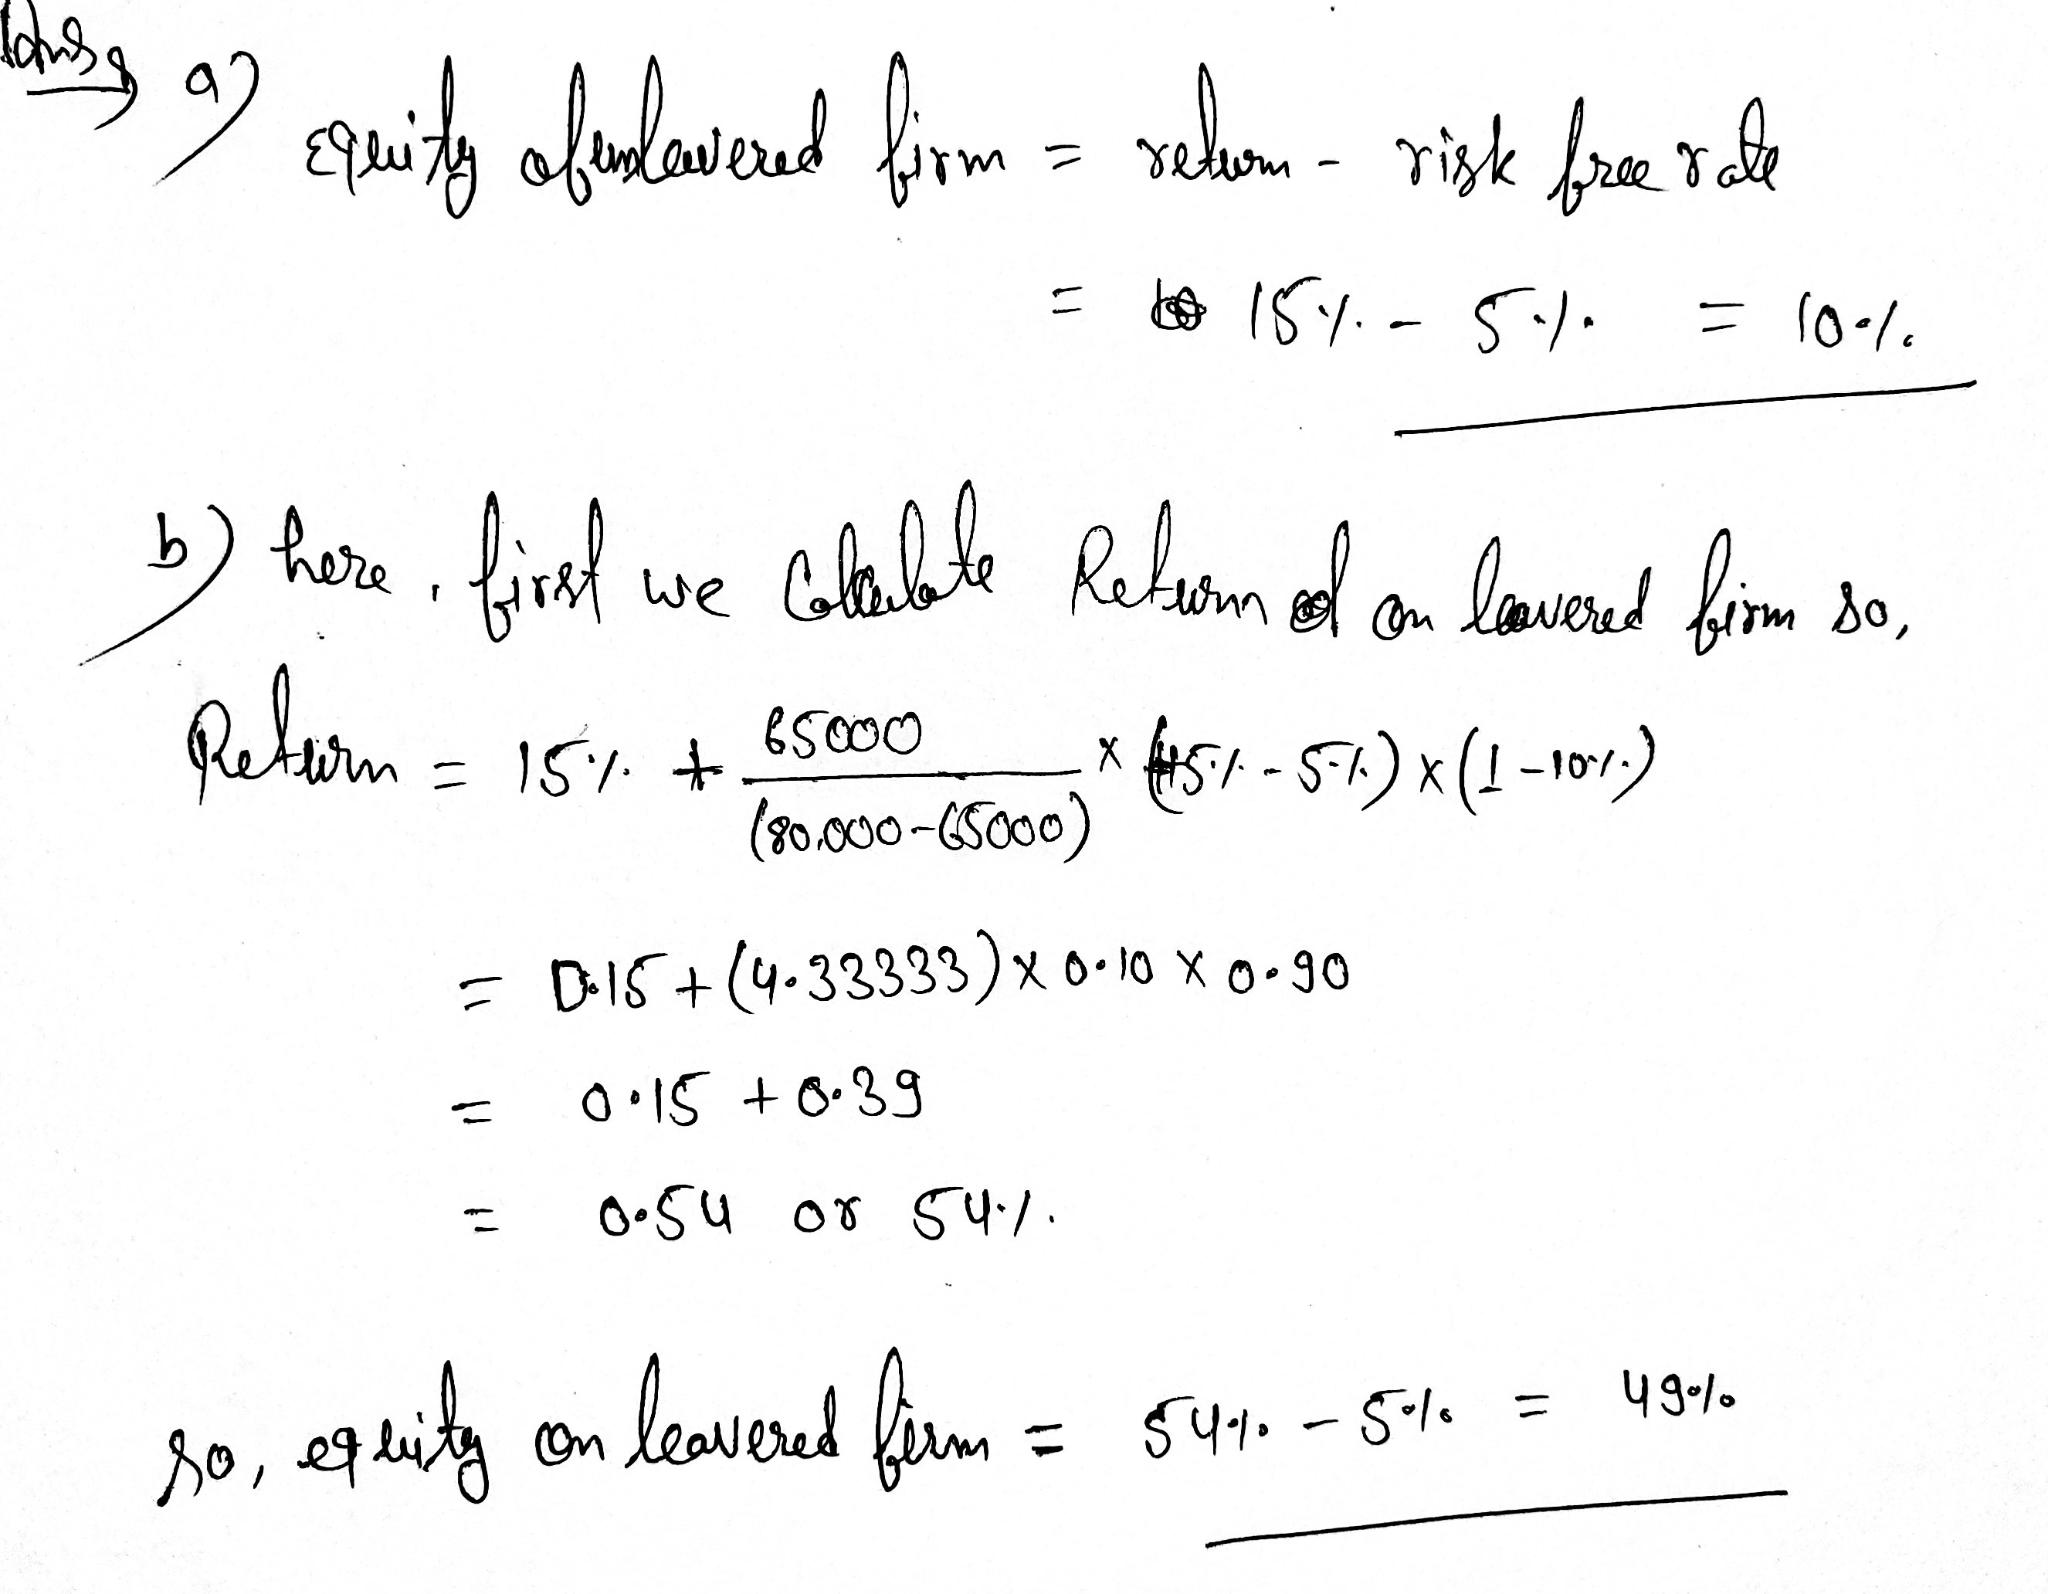 Ans a) equity of unleavered firm = return - risk free rate
= 15% - 5% = 10%
b) here, first we Calculate Return on leavered firm so,
Return = 15% + 65000 / (80,000-65000) x (15% - 5%) x (1-10%)
= 0.15 + (4.33333) x 0.10 x 0.90
= 0.15 + 0.39
= 0.54 or 54%.
so, equity on leavered firm = 54% - 5% = 49%